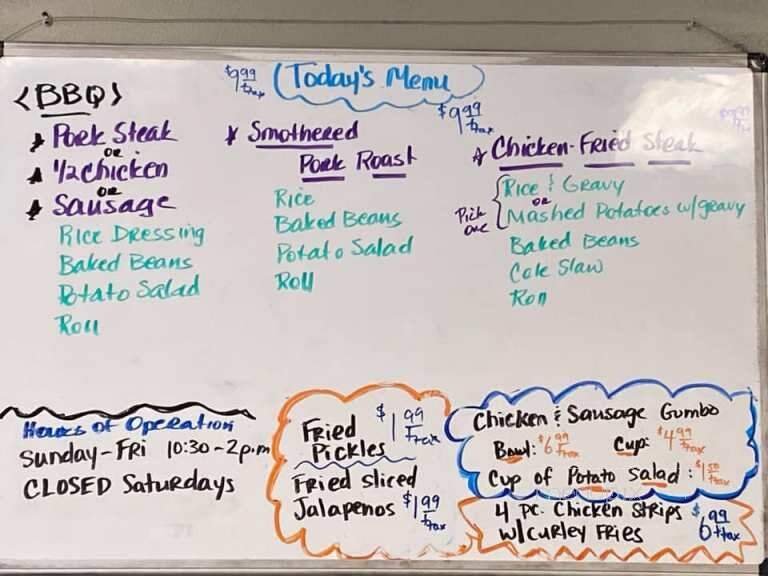 Today's Menu
<BBQ>
$9.99 + tax
Pork Steak
OR
1/2 chicken
OR
Sausage
Rice Dressing
Baked Beans
Potato Salad
Roll
$9.99 + tax
Smothered
Pork Roast
Rice
Baked Beans
Potato Salad
Roll
Chicken-Fried Steak
Pick one
Rice & Gravy
OR
Mashed Potatoes w/gravy
Baked Beans
Cole Slaw
Roll
Hours of Operation
Sunday-Fri 10:30-2p.m
CLOSED Saturdays
Fried Pickles $1.99 + tax
Fried sliced
Jalapenos $1.99 + tax
Chicken & Sausage Gumbo
Bowl: $6.99 + tax Cup: $4.99 + tax
Cup of Potato salad: $1.50 + tax
4 pc. Chicken Strips $6.99 + tax
w/curley Fries